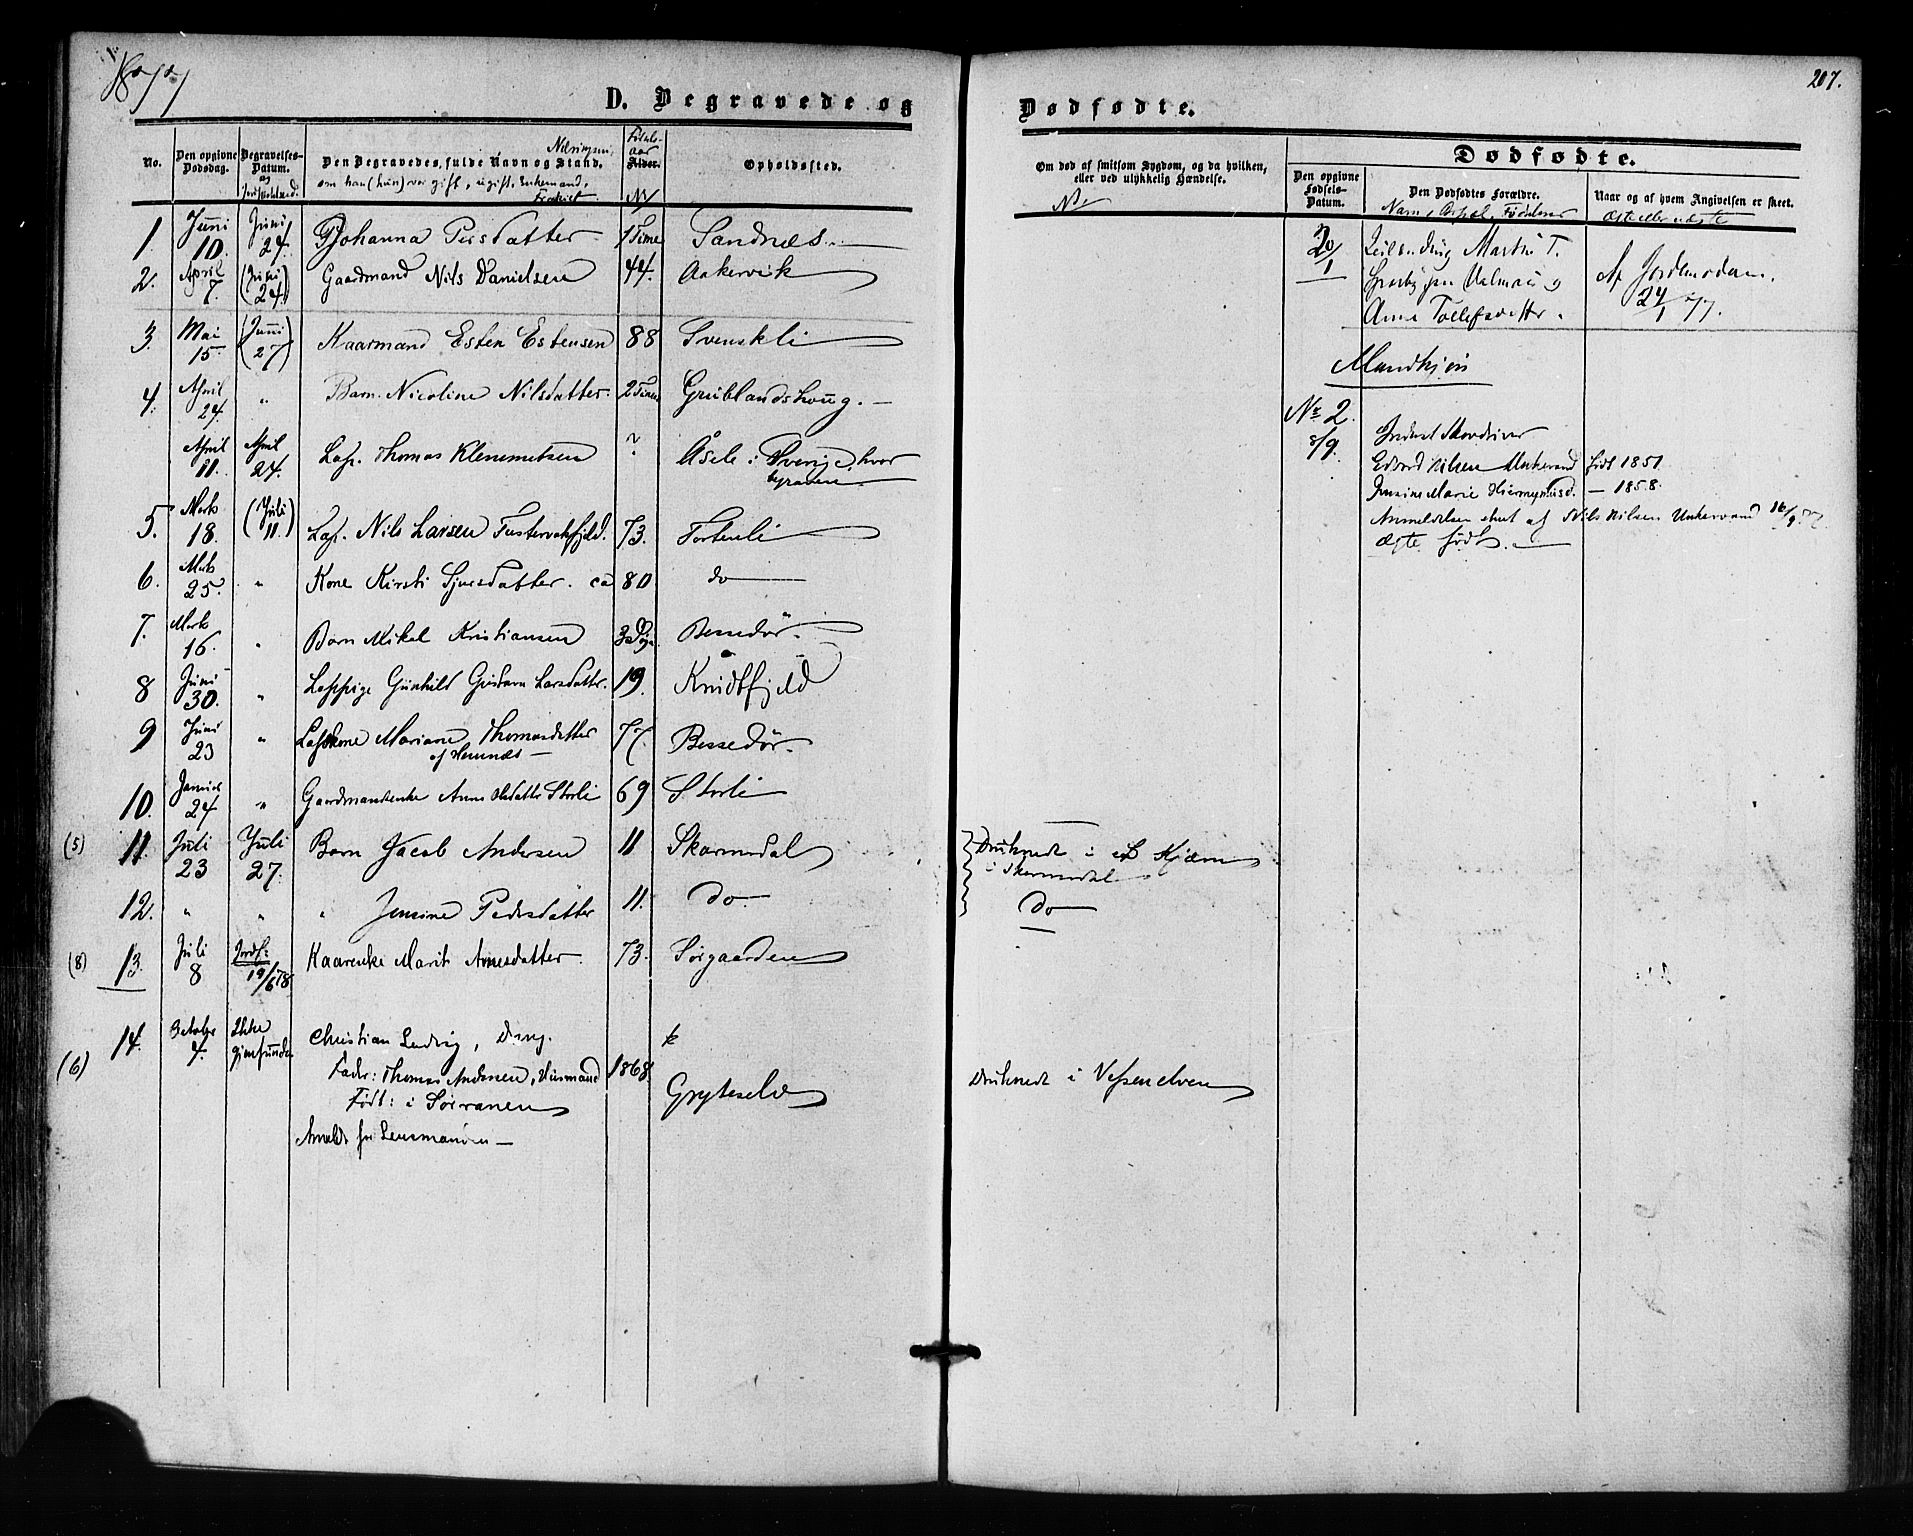 1877
207.
D. Begravede og Dødfødte.
No.
Den opgivne Dødsdag.
Begravelses-Datum.
og
Den Begravedes fulde Navn og Stand.
om han (hun) var gift, ugift, Enkemand,
Fødsels-aar
Alder.
Opholdssted.
Om død af smitsom Sygdom, og da hvilken, eller ved ulykkelig Hændelse.
Dødfødte.
Den opgivne Fødsels-Datum.
Den Dødfødtes Forældre.
Naar og af hvem Angivelsen er skeet.
Ægte eller uægte
1. Juni 10. Juni 24. Johanna Persdatter 1 Time Sandnes
2. April 7. (Juni 24.) Gaardmand Nils Danielsen 44. Aakervik
3. Mai 15. (Juni 27) Kaarmand Esten Estensen 88 Svenskli
4. April 24. " Barn Nicoline Nilsdatter 2 Timer Grublandshoug.
April 11. April 24. Lap. Thomas Klemmetsen ? Åsele i Sverige, hvor
begraven
5. Marts 18. (Juli 11.) Lap. Nils Larsen 73. Fortenli
6. Marts 25. " Kone Kirsti Sjursdatter. ca 80 do
7. Marts 16. " Barn Mikal Kristiansen 3 Døgn Bessedør.
8 Juni 30. " Lappige Gunhild Larsdatter. 19.
9 Juni 23 " Lapkone Mariane Thomasdatter 77. Bessedør.
af Hemnæs
10. Januar 24 " Gaardmandsenke Anne Olsdatter Storli 69 Storli
(5) 11. Juli 23 Juli 27. Barn Jacob Andersen 11 Skarmdal Druknede i et Kjærn
i Skarmodal
12. " " " Jensine Pedersdatter 11. do do
(8) 13. Juli 8 Jordf: 19/6 78 Kaarenke Marit Arnesdatter 73. Sørgaarden
(6) 14. October 4. Ikke gjenfunden Christian Ludvig, Dreng.
Fader: Thomas Andersen, Husmand 1868. Grytselv Druknede i Vefsenelven
Født: i Sørranen
Anmeldt fra Lensmanden
20/1
Martin T.
Anne Tollefsdatter.
Af Jordemoderen.
24/1 77.
Mandkjøn
No 2
8/9. Inderst Skovdriver
Edvard Nilsen Unkervand født 1851
Jensine Marie Hieronymusd. — 1858.
Anmeldelsen skeet af Nils Nilsen Unkervand 16/9 77.
Ægte født.